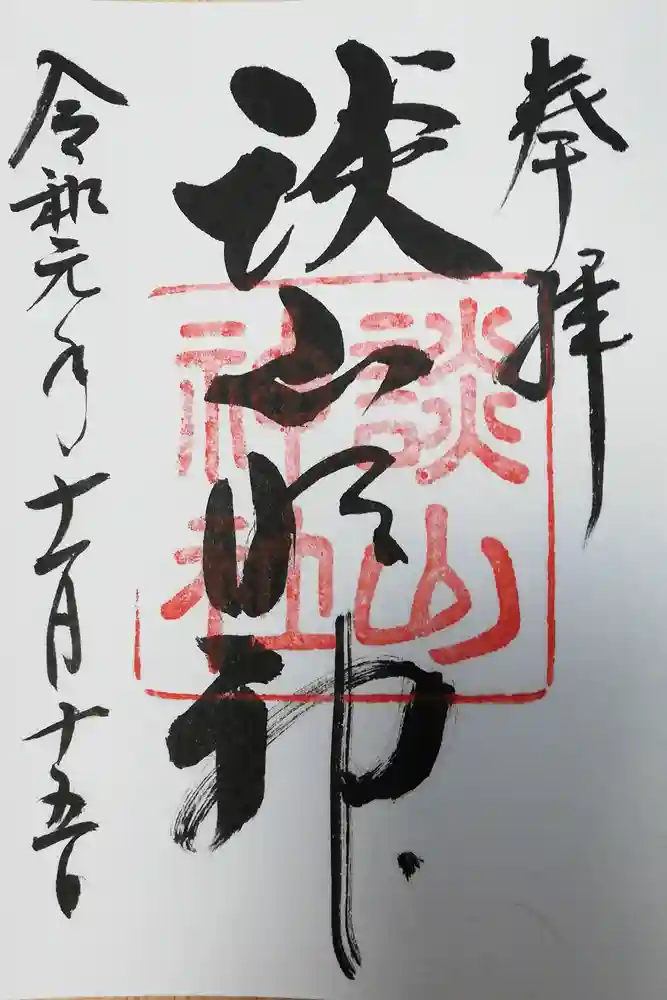 奉拝
談山明神
談山
神社
令和元年十一月十五日